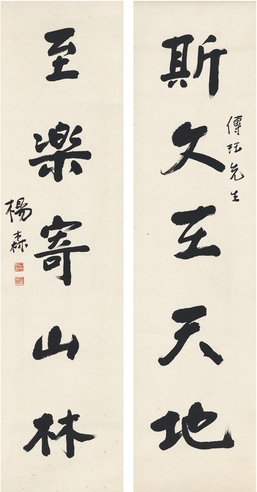 斯文在天地
傅珏先生
至樂寄山林
楊森